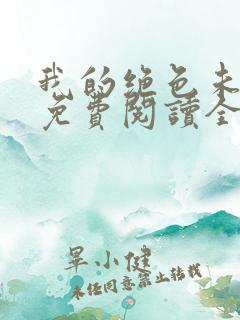 我的绝色未
免費閱讀全
單小健
未经同意禁止转载